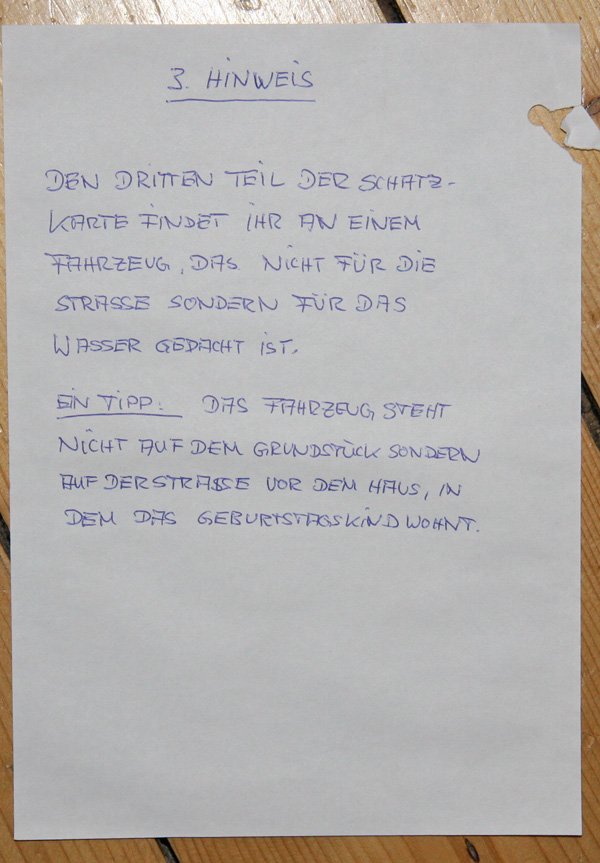 3. HINWEIS
DEN DRITTEN TEIL DER SCHATZ-
KARTE FINDET IHR AN EINEM
FAHRZEUG, DAS NICHT FÜR DIE
STRASSE SONDERN FÜR DAS
WASSER GEDACHT IST.
EIN TIPP: DAS FAHRZEUG STEHT
NICHT AUF DEM GRUNDSTÜCK SONDERN
AUF DER STRASSE VOR DEM HAUS, IN
DEM DAS GEBURTSTAGSKIND WOHNT.